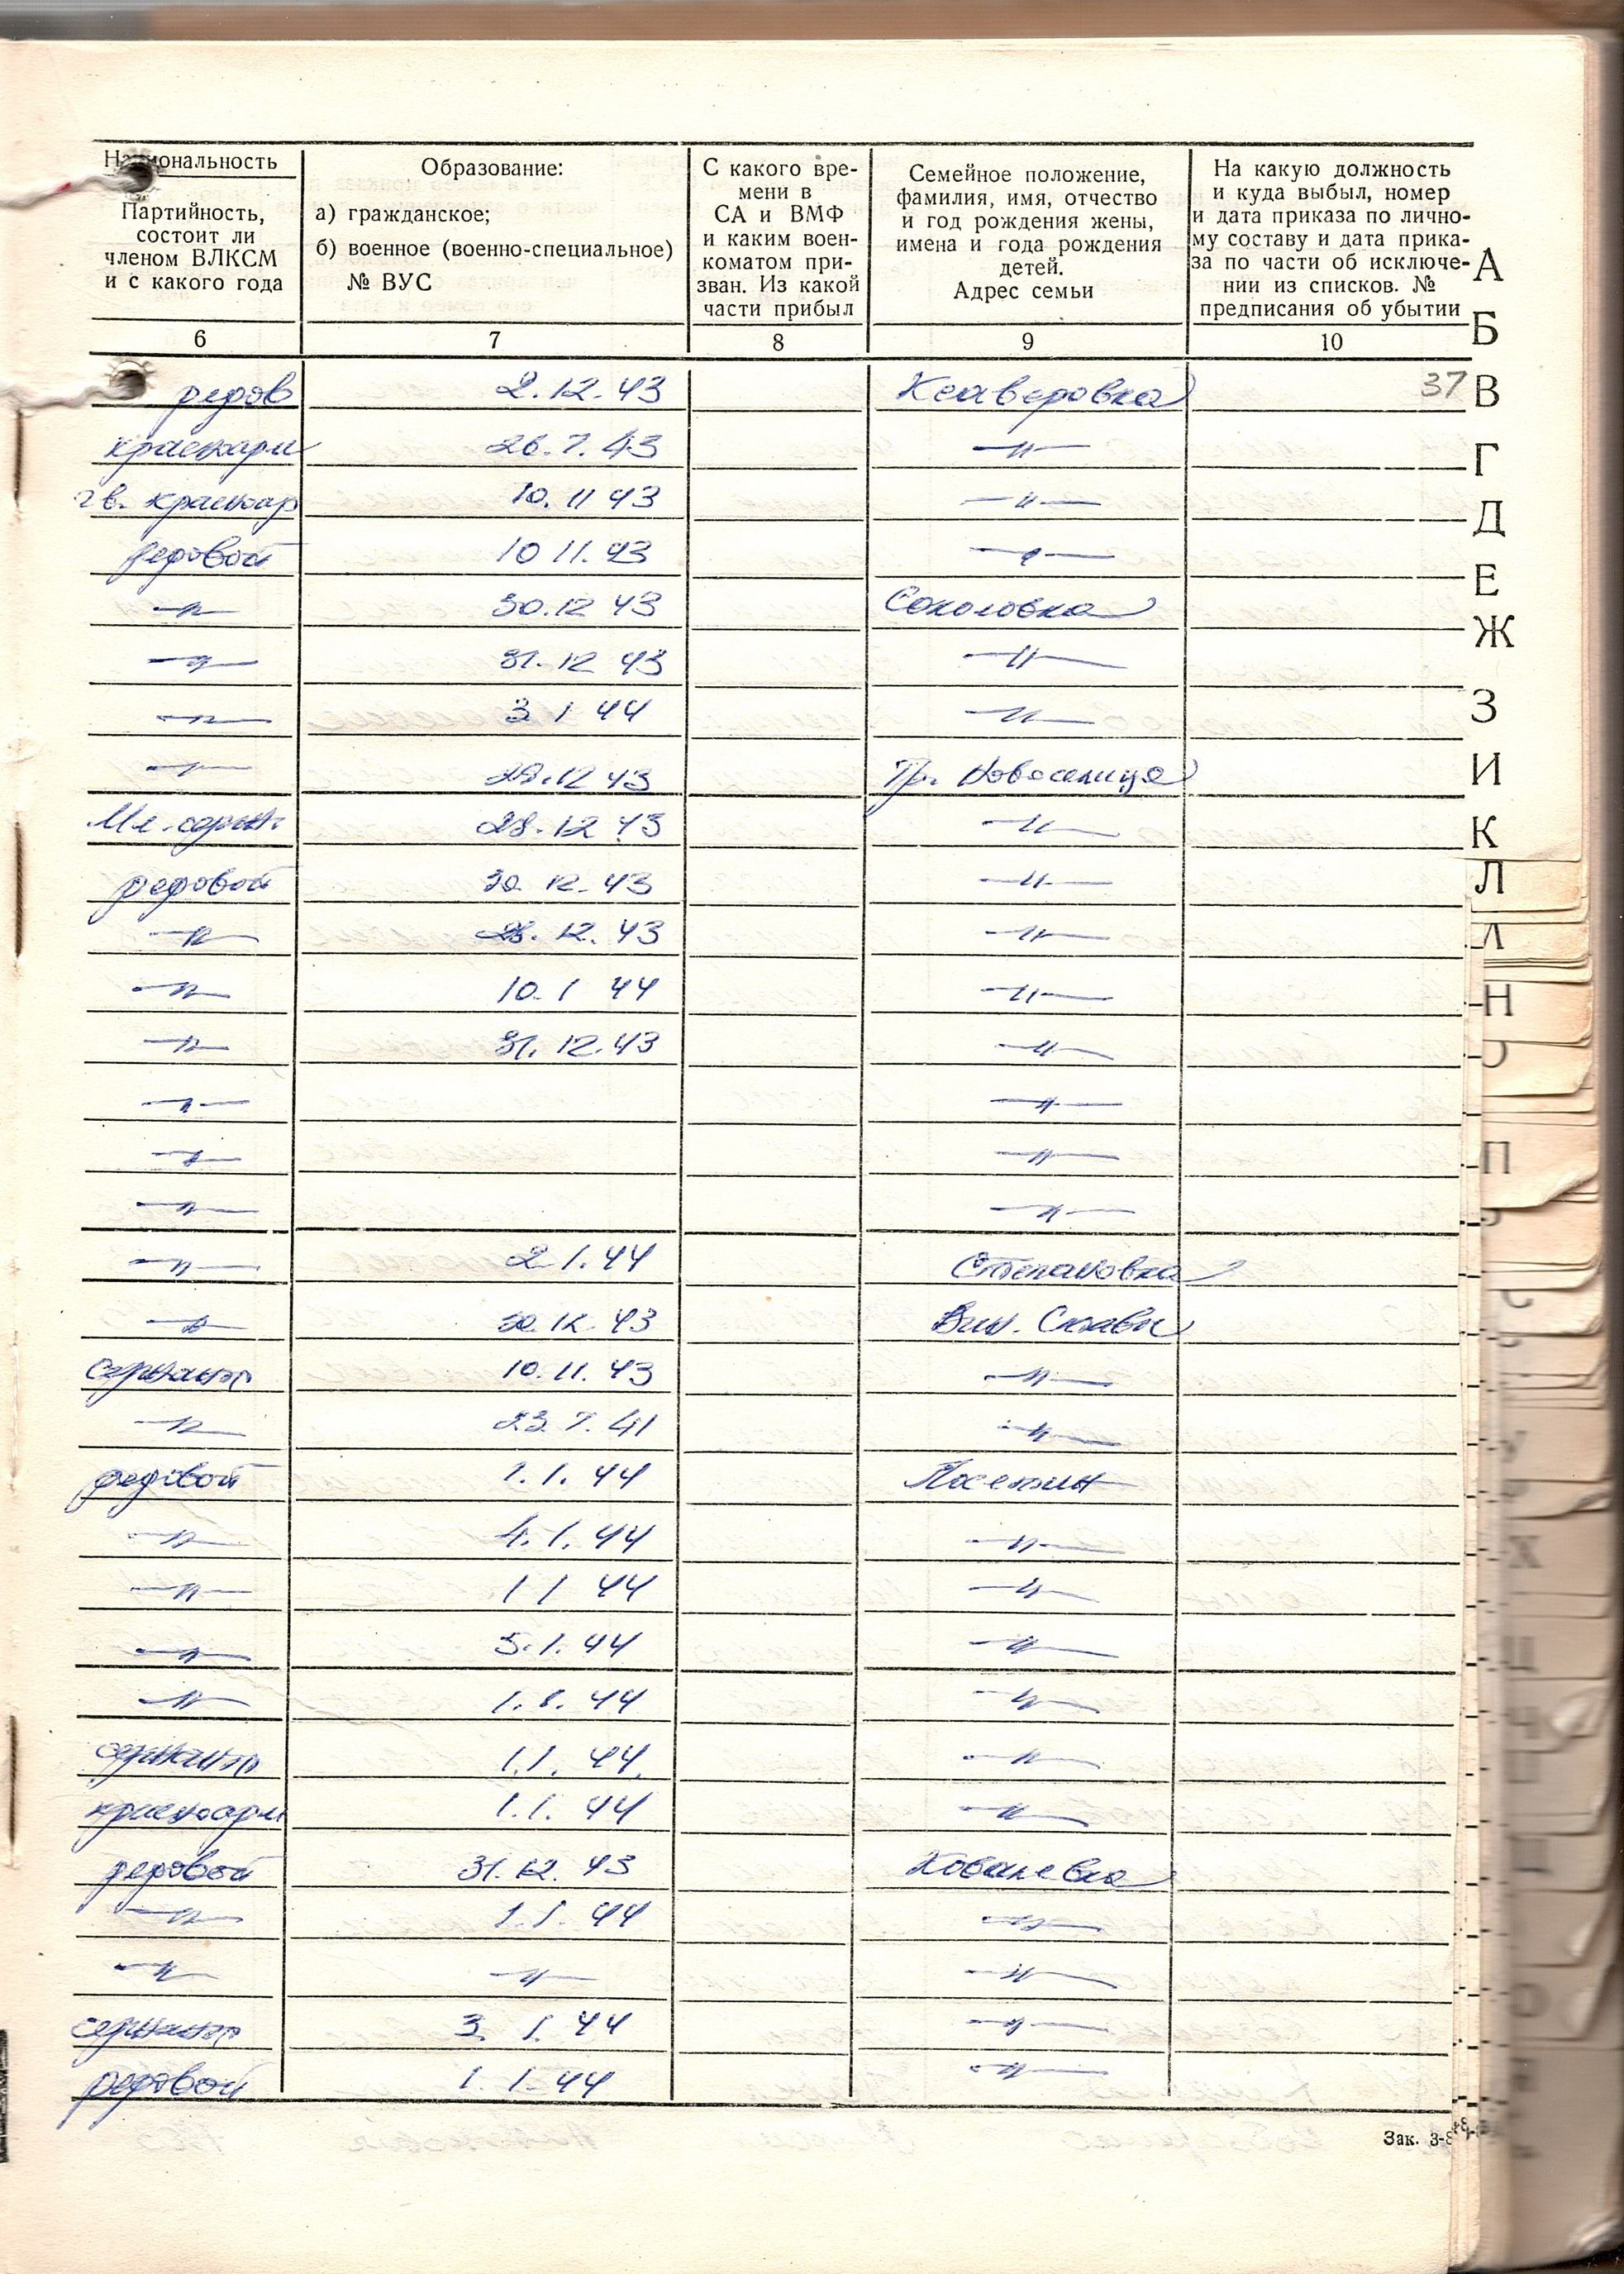 Национальность
Партийность,
состоит ли
членом ВЛКСМ
и с какого года
Образование:
а) гражданское;
б) военное (военно-специальное)
№ ВУС
С какого вре-
мени в
СА и ВМФ
и каким воен-
коматом при-
зван. Из какой
части прибыл
Семейное положение,
фамилия, имя, отчество
и год рождения жены,
имена и года рождения
детей.
Адрес семьи
На какую должность
и куда выбыл, номер
и дата приказа по лично-
му составу и дата прика-
за по части об исключе-
нии из списков. №
предписания об убытии
6 7 8 9 10
рядов 2.12.43 Ксаверовка 37
красноарм 26.7.43 —"—
гв. красноар 10.11 43 —"—
рядовой 10 11.43 —"—
—"— 30.12 43 Соколовка
—"— 31.12 43 —"—
—"— 3 1 44 —"—
—"— 29.12 43 Гр. Новоселица
Мл. сержан. 28.12 43 —"—
рядовой 30.12.43 —"—
—"— 28.12.43 —"—
—"— 10.1 44 —"—
—"— 31.12.43 —"—
—"— —"—
—"— —"—
—"— —"—
—"— 2 1.44 Степановка
—"— 30.12.43 Вин. Ставы
сержант 10.11.43 —"—
—"— 23.7.41 —"—
рядовой 1.1.44
—"— 4.1.44 —"—
—"— 1 1 44 —"—
—"— 5.1.44 —"—
—"— 44 —"—
сержант 1.1.44. —"—
красноарм 1.1.44 —"—
рядовой 31.12.43 Ковалевка
—"— 1.1.44 —"—
—"— —"— —"—
сержант 3.1.44 —"—
рядовой 1.1.44 —"—
Зак. 3-8
А
Б
В
Г
Д
Е
Ж
З
И
К
Л
Н
П
Х